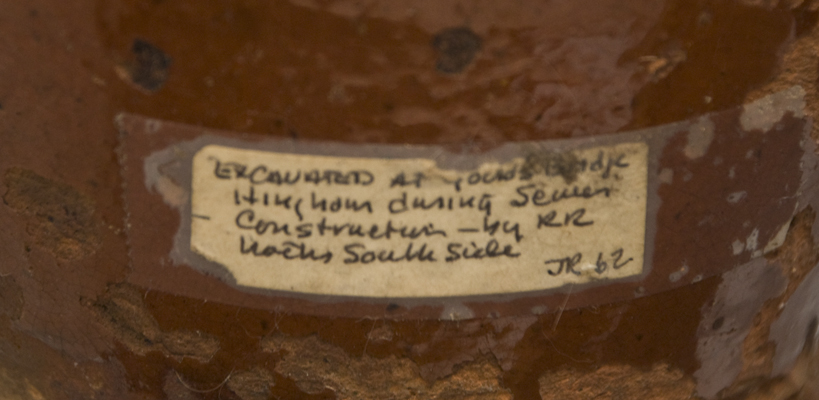 EXCAVATED AT Bridge
Hingham during Sewer
Construction - by RR
South Side
JR 62